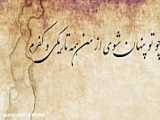 چو تو پنهان شوی از من همه تاریکی و کفرم